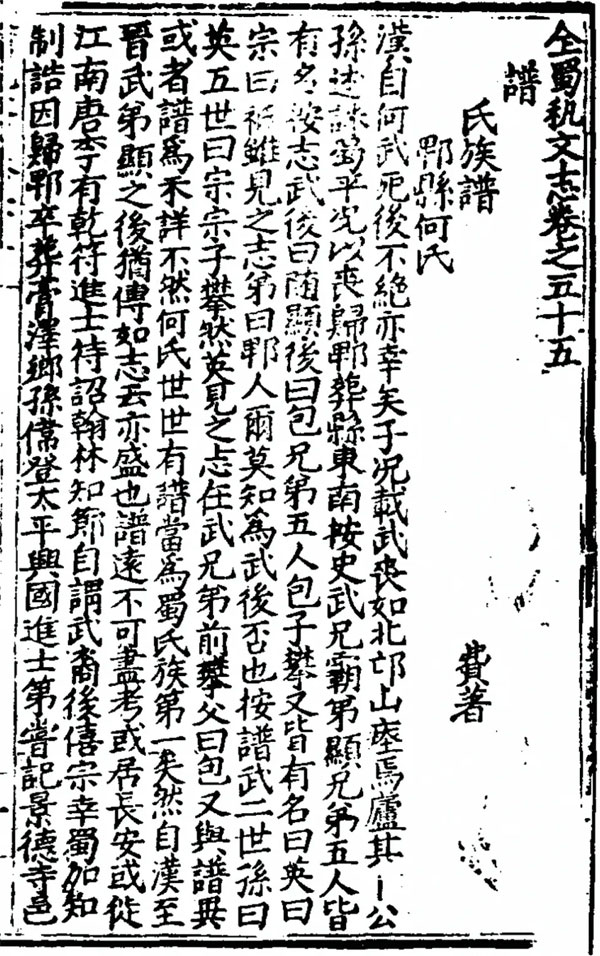 全蜀秇文志卷之五十五
譜
氏族譜　費著
郫縣何氏
漢自何武死後不絕亦幸矣子况載武喪如北邙山塟焉廬其丨公
孫述誅蜀平况以喪歸郫葬縣東南桉史武兄霸弟顯兄弟五人皆
有名按志武後曰随顯後曰包兄弟五人包子攀又皆有名曰英曰
宗曰祗雖見之志弟曰郫人爾莫知為武後否也按譜武二世孫曰
英五世曰宗宗子攀然英見之志在武兄弟前攀父曰包又與譜異
或者譜為不詳不然何氏世世有譜當為蜀氏族第一矣然自漢至
晉武弟顯之後猶傳如志云亦盛也譜遠不可盡考或居長安或徙
江南唐季有乾符進士待詔翰林知節自謂武裔後僖宗幸蜀加知
制誥因歸郫卒葬膏澤鄉孫登太平興國進士第嘗記景德寺邑